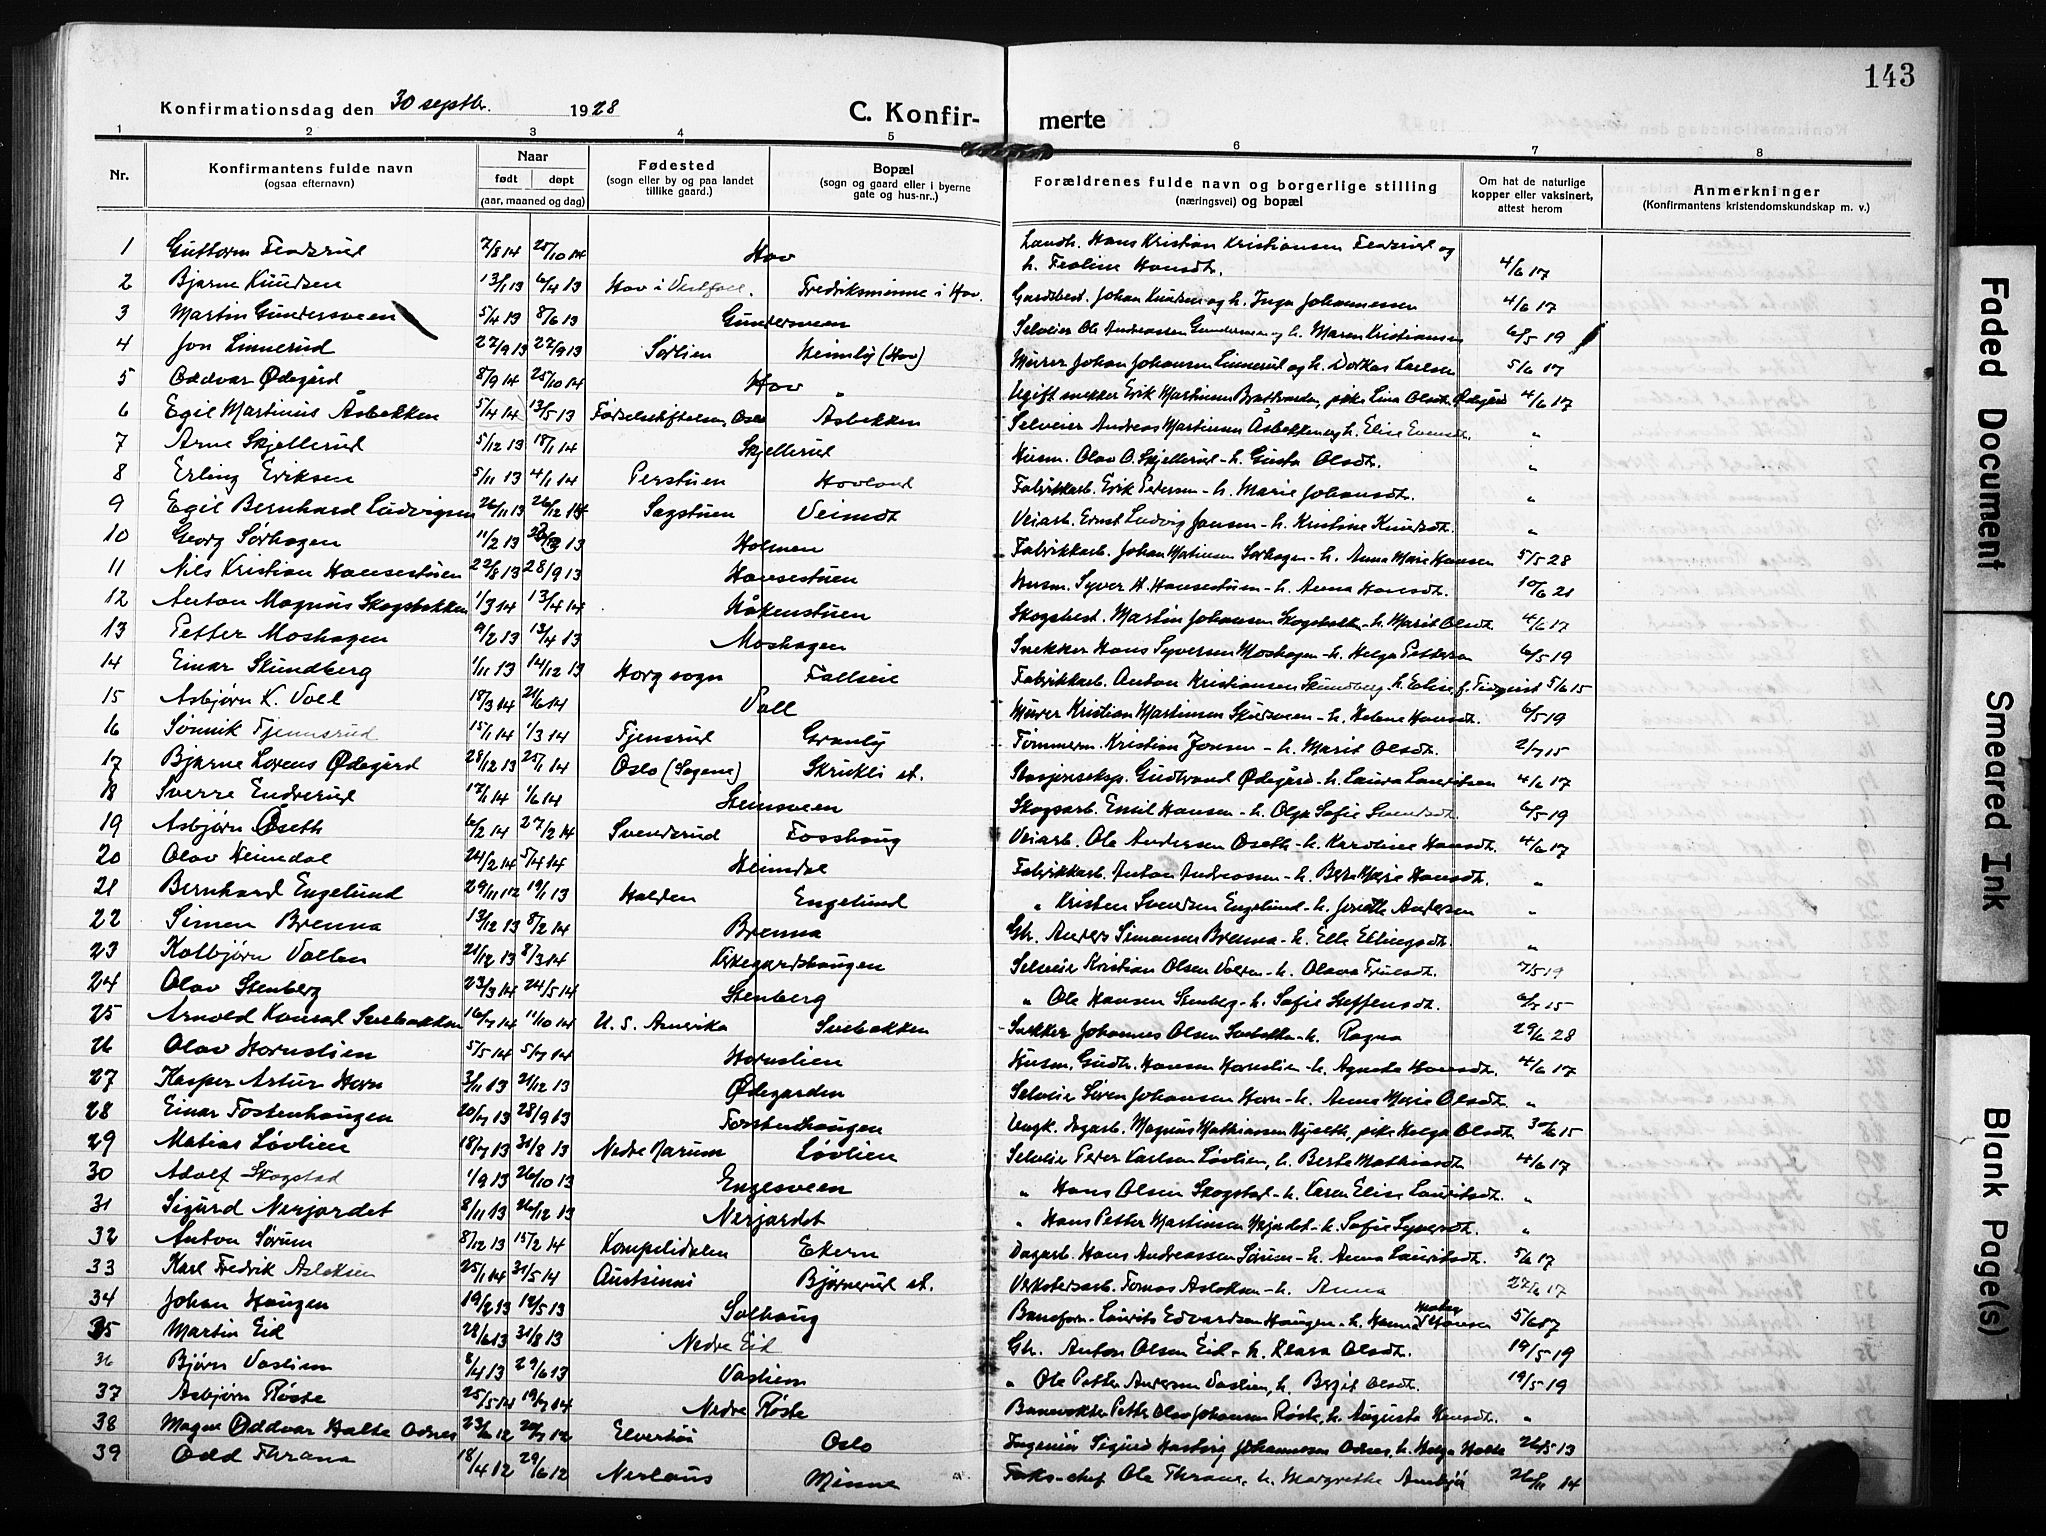 143
Konfirmationsdag den 30 septbr. 1928
C. Konfir- merte
1 2 3 4 5 6 7 8
Nr. Konfirmantens fulde navn (ogsaa efternavn) Naar født døpt (aar, maaned og dag) Fødested (sogn eller by og paa landet tillike gaard.) Bopæl (sogn og gaard eller i byerne gate og hus-nr..) Forældrenes fulde navn og borgerlige stilling (næringsvei) og bopæl Om hat de naturlige kopper eller vaksinert, attest herom Anmerkninger (Konfirmantens kristendomskundskap m. v.)
1 Guttorm 7/8 14 25/10 14 Hov Landh. Hans Kristian Kristiansen og h. Hansdt. 4/6 17
2 Bjarne Knudsen 13/1 13 6/4 13 Hov i Fredriksminne i Hov. Gardsbest. Johan Knudsen og h. Inga Johannessen 4/6 17
3 Martin Gundersveen 5/4 13 8/6 13 Gundersveen Selveier Ole Andreassen Gundersveen og h. Maren Kristiansen 6/5 19
4 Jon Linnerud 27/9 13 Sørlien Heimly (Hov) Murer Johan Johansen Linnerud og h. Dorthea Karlsen 5/6 17
5 Oddvar Ødegård 8/9 14 25/10 14 Hov Ugift snekker Erik Martinsen pike Lina Olsdt. Ødegård 4/6 17
6 Egil Martinus Åsbekken 5/4 14 13/5 13 Fødselsstiftelsen, Oslo Åsbekken Selveier Andreas Martinsen Åsbekken og h. Elise Evensdt. "
7 Arne Skjellerud 5/12 13 18/1 14 Skjellerud Husm. Olav O. Skjellerud - h. Gusta Olsdt. "
8 Erling Eriksen 5/11 13 4/1 14 Perstuen Hovland Fabrikkarb. Erik Pedersen - h. Marie Johansdt. "
9 Egil Bernhard Ludvigsen 26/11 13 26/12 13 Sagstuen Veimdt Veiarb. Ernst Ludvig Jansen - h. Kristine Knudsdt. "
10 Georg Sørhagen 11/2 13 13 Holmen Fabrikkarb. Johan Martinsen Sørhagen - h. Anna Marie Hansen 5/5 28
11 Nils Kristian Hansestuen 22/8 13 28/9 13 Hansestuen Husm. Syver H. Hansestuen - h. Anna Hansdt. 10/6 21
12 Anton Magnus Skogsbakken 1/3 14 13/4 14 Håkenstuen Skogsbest. Martin Johansen Skogsbakk. - h. Marit Olsdt. 4/6 17
13 Petter Moshagen 9/2 13 13/4 13 Moshagen Snekker Hans Syversen Moshagen - h. Helga Petterson 6/5 19
14 Einar Skundberg 1/11 13 14/12 13 Horg sogn Fallseie Fabrikkarb. Anton Kristiansen Skundberg h. Elise f. 5/6 15
15 Asbjørn K. Voll 18/3 14 21/6 14 Voll Murer Kristian Martinsen - h. Helene Hansdt. 6/5 19
16 Sønnik Fjennsrud 15/1 14 1/3 14 Fjensrud Granly Tømmerm. Kristian Jonsen - h. Marit Olsdt. 2/7 15
17 Bjarne Lorens Ødegård 28/12 13 25/1 14 Oslo (Sagene) Skrukli st. Stasjonseksp. Gudbrand Ødegård - h. Laura Lauritsen 4/6 17
18 Sverre Endrerud 17/1 14 1/6 14 Steinsveen Skogsarb. Emil Hansen - h. Olga Sofie Svendsdt. 6/5 19
19 Asbjørn Øseth 6/2 14 27/2 14 Svendsrud Fosshaug Veiarb. Ole Andersen Øseth - h. Karoline Hansdt. 4/6 17
20 Olav Heimdal 24/2 14 5/4 14 Heimdal Fabrikkarb. Anton Andreassen - h. Berte Marie Hansdt. "
21 Bernhard Engelund 29/11 12 19/1 13 Halden Engelund " Kristen Svendsen Engelund - h. Josefa Andersen "
22 Simen Brenna 13/12 13 8/2 14 Brenna Gbr. Anders Simensen Brenna - h. Elle Ellingsdt. "
23 Kolbjørn Vollen 21/12 13 8/3 14 Kirkegardshaugen Selveier Kristian Olsen Volden - h. Olava Truelsdt. 7/5 19
24 Olav Stenberg 23/3 14 24/5 14 Stenberg " Ole Hansen Stenberg - h. Sofie Steffensdt. 6/7 15
25 Arnold Konrad Svebakken 16/7 14 11/10 14 U. S. Amerika Svebakken Snekker Johannes Olsen Svebakken - h. Ragna 29/6 28
26 Olav Hornslien 5/5 14 5/7 14 Hornslien Husm. Gudbr. Hansen Hornslien - h. Agnete Hansdt. 4/6 17
27 Kasper Artur Horn 3/11 13 21/12 13 Ødegarden Selveier Søren Johansen Horn - h. Anna Marie Olsdt. "
28 Einar Fostenhaugen 20/7 13 28/9 13 Fostenhaugen Ungk. Dagarb. Magnus Mathiassen pike Helga Olsdt. 30/6 15
29 Matias Løvlien 18/7 13 31/8 13 Nedre Narum Løvlien Selveier Peder Karlsen Løvlien, h. Berte Mathiasdt. 4/6 17
30 Adolf Skogstad 1/9 13 26/10 13 Engesveen " Hans Olsen Skogstad - h. Karen Elise Lauritsdt. "
31 Sigurd Nerjordet 8/11 13 26/12 13 Nerjordet " Hans Petter Martinsen Nerjordet - h. Sofie Syversdt. "
32 Anton Sørum 8/12 13 15/2 14 Kompelidalen Ekern Dagarb. Hans Andreassen Sørum - h. Anna Lauritsdt. 5/6 17
33 Karl Fredrik Aslaksen 25/1 14 31/5 14 Bjørnerud st. Verkstedsarb. Tomas Aslaksen - h. Anna 27/6 17
34 Johan Haugen 19/2 13 12/5 13 Solhaug Baneform. Laurits Edvardsen Haugen - h. Hanna Hansen 5/6 17
35 Martin Eid 28/6 13 31/8 13 Nedre Eid Gbr. Anton Olsen Eid - h. Klara Olsdt. 19/5 19
36 Bjørn Vaslien 8/4 13 29/6 13 Vaslien " Ole Petter Andersen Vaslien, h. Bergit Olsdt. 19/5 19
37 Asbjørn Røste 25/5 14 19/7 14 Nedre Røste Banevokter Petter Olav Johansen Røste, h. Augusta Hansdt. "
38 Magne Oddvar Halte Odnes 23/6 12 12 Elverhøi Oslo Ingeniør Sigurd Johannessen Odnes, h. Helga Halte 26/5 13
39 Odd Thrane 18/4 12 29/6 12 Nerlaus Minne Ole Thrane, h. Margrethe 26/11 14
Faded Document
Smeared Ink
Blank Page(s)